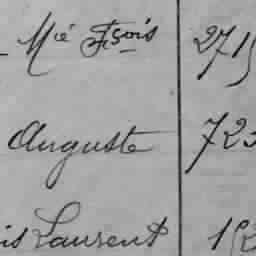 Mié Fçois 271
Auguste 72
is Laurent 1